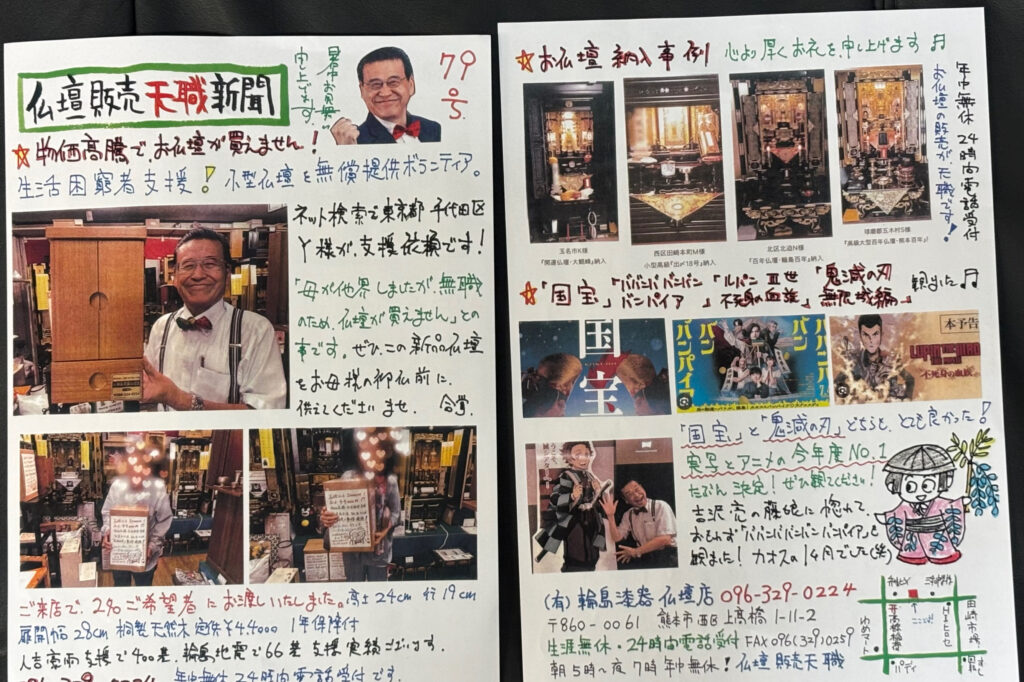 仏壇販売天職新聞
暑中お見舞
申し上げます。
79号
☆物価高騰で、お仏壇が買えません!
生活困窮者支援! 小型仏壇を無償提供ボランティア。
ネット検索で東京都千代田区
Y様が、支援依頼です!
「母が他界しましたが、無職
のため、仏壇が買えません」との
事です。ぜひ、この新品仏壇
をお母様の御仏前に、
供えてくださいませ。 合掌
ご来店で、2名ご希望者にお渡しいたしました。高さ24cm 行19cm
扉開幅28cm 桐製天然木 定価¥4,4000 1年保障付
人吉豪雨支援で400基、輪島地震で66基支援実績ございます。
年中無休24時間電話受付です。
☆お仏壇納入事例 心より厚くお礼を申し上げます♬
年中無休 24時間電話受付
お仏壇の販売が、天職です!
玉名市K様
「開運仏壇・大観峰」納入
西区田崎本町M様
小型高級『出〆18号』納入
北区北迫N様
「百年仏壇・輪島百年」納入
球磨郡五木村S様
「高級大型百年仏壇・熊本百年」
☆「国宝」「ババンババンバンバンパイア」「ルパンⅢ世 不死身の血族」「鬼滅の刃 無限城編」観ました♬
国宝
バババンバンバンパイア
本予告
不死身の血族
「国宝」と「鬼滅の刃」どちらも、とても良かった!
実写とアニメの今年度No.1
たぶん決定!ぜひ観てください!
吉沢亮の勝姫に惚れて、
おもわず「ババンババンバンバンパイア」も
観ました!カオスの1ヶ月でした(笑)
(有)輪島漆器仏壇店 096-329-0224
〒860-0061 熊本市西区上高橋1-11-2
生涯無休・24時間電話受付 FAX096(329)0259
朝5時〜夜7時年中無休!仏壇販売天職
ゆめマート
ここだよ!
田崎市場